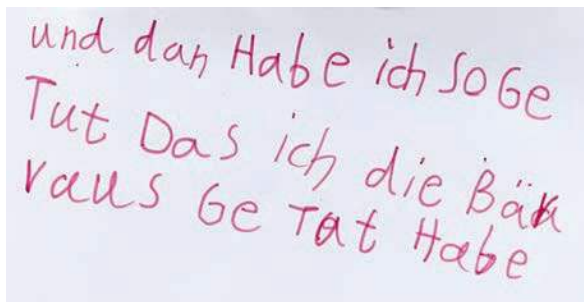 und dan Habe ich so Ge
Tut Das ich die
raus Ge Tat Habe